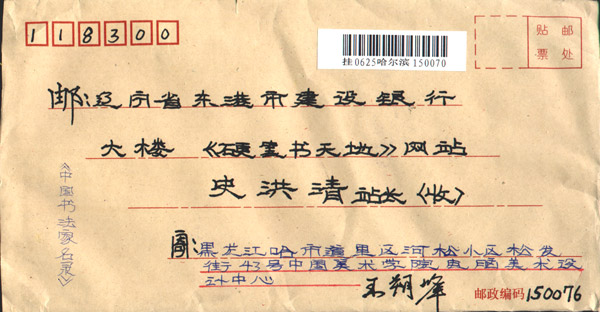 118300
挂0625哈尔滨 150070
贴邮
票处
邮:辽宁省东港市建设银行
大楼《硬笔书天地》网站
史洪清站长(收)
《中国书法家名录》
黑龙江哈市道里区河松小区松发
街43号中国美术学院电脑美术设
计中心
王朔峰
邮政编码 150076